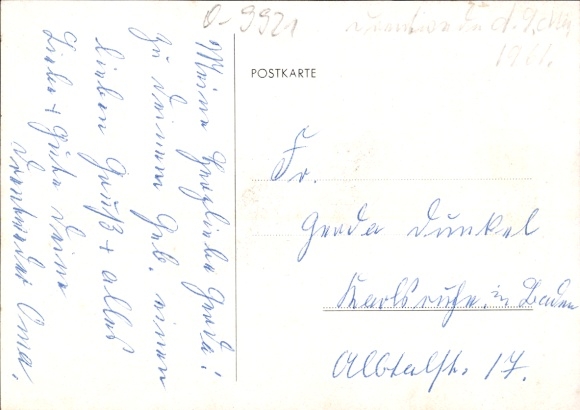 O-9921
d. 9.
1961.
POSTKARTE
Meine herzliebe Gerda!
zu deinem Geb. einen
lieben Gruß + alles
Liebe + Gute deine
Oma.
Fr.
Gerda Dunkel
Karlsruhe, in Baden
Albtalstr. 17.